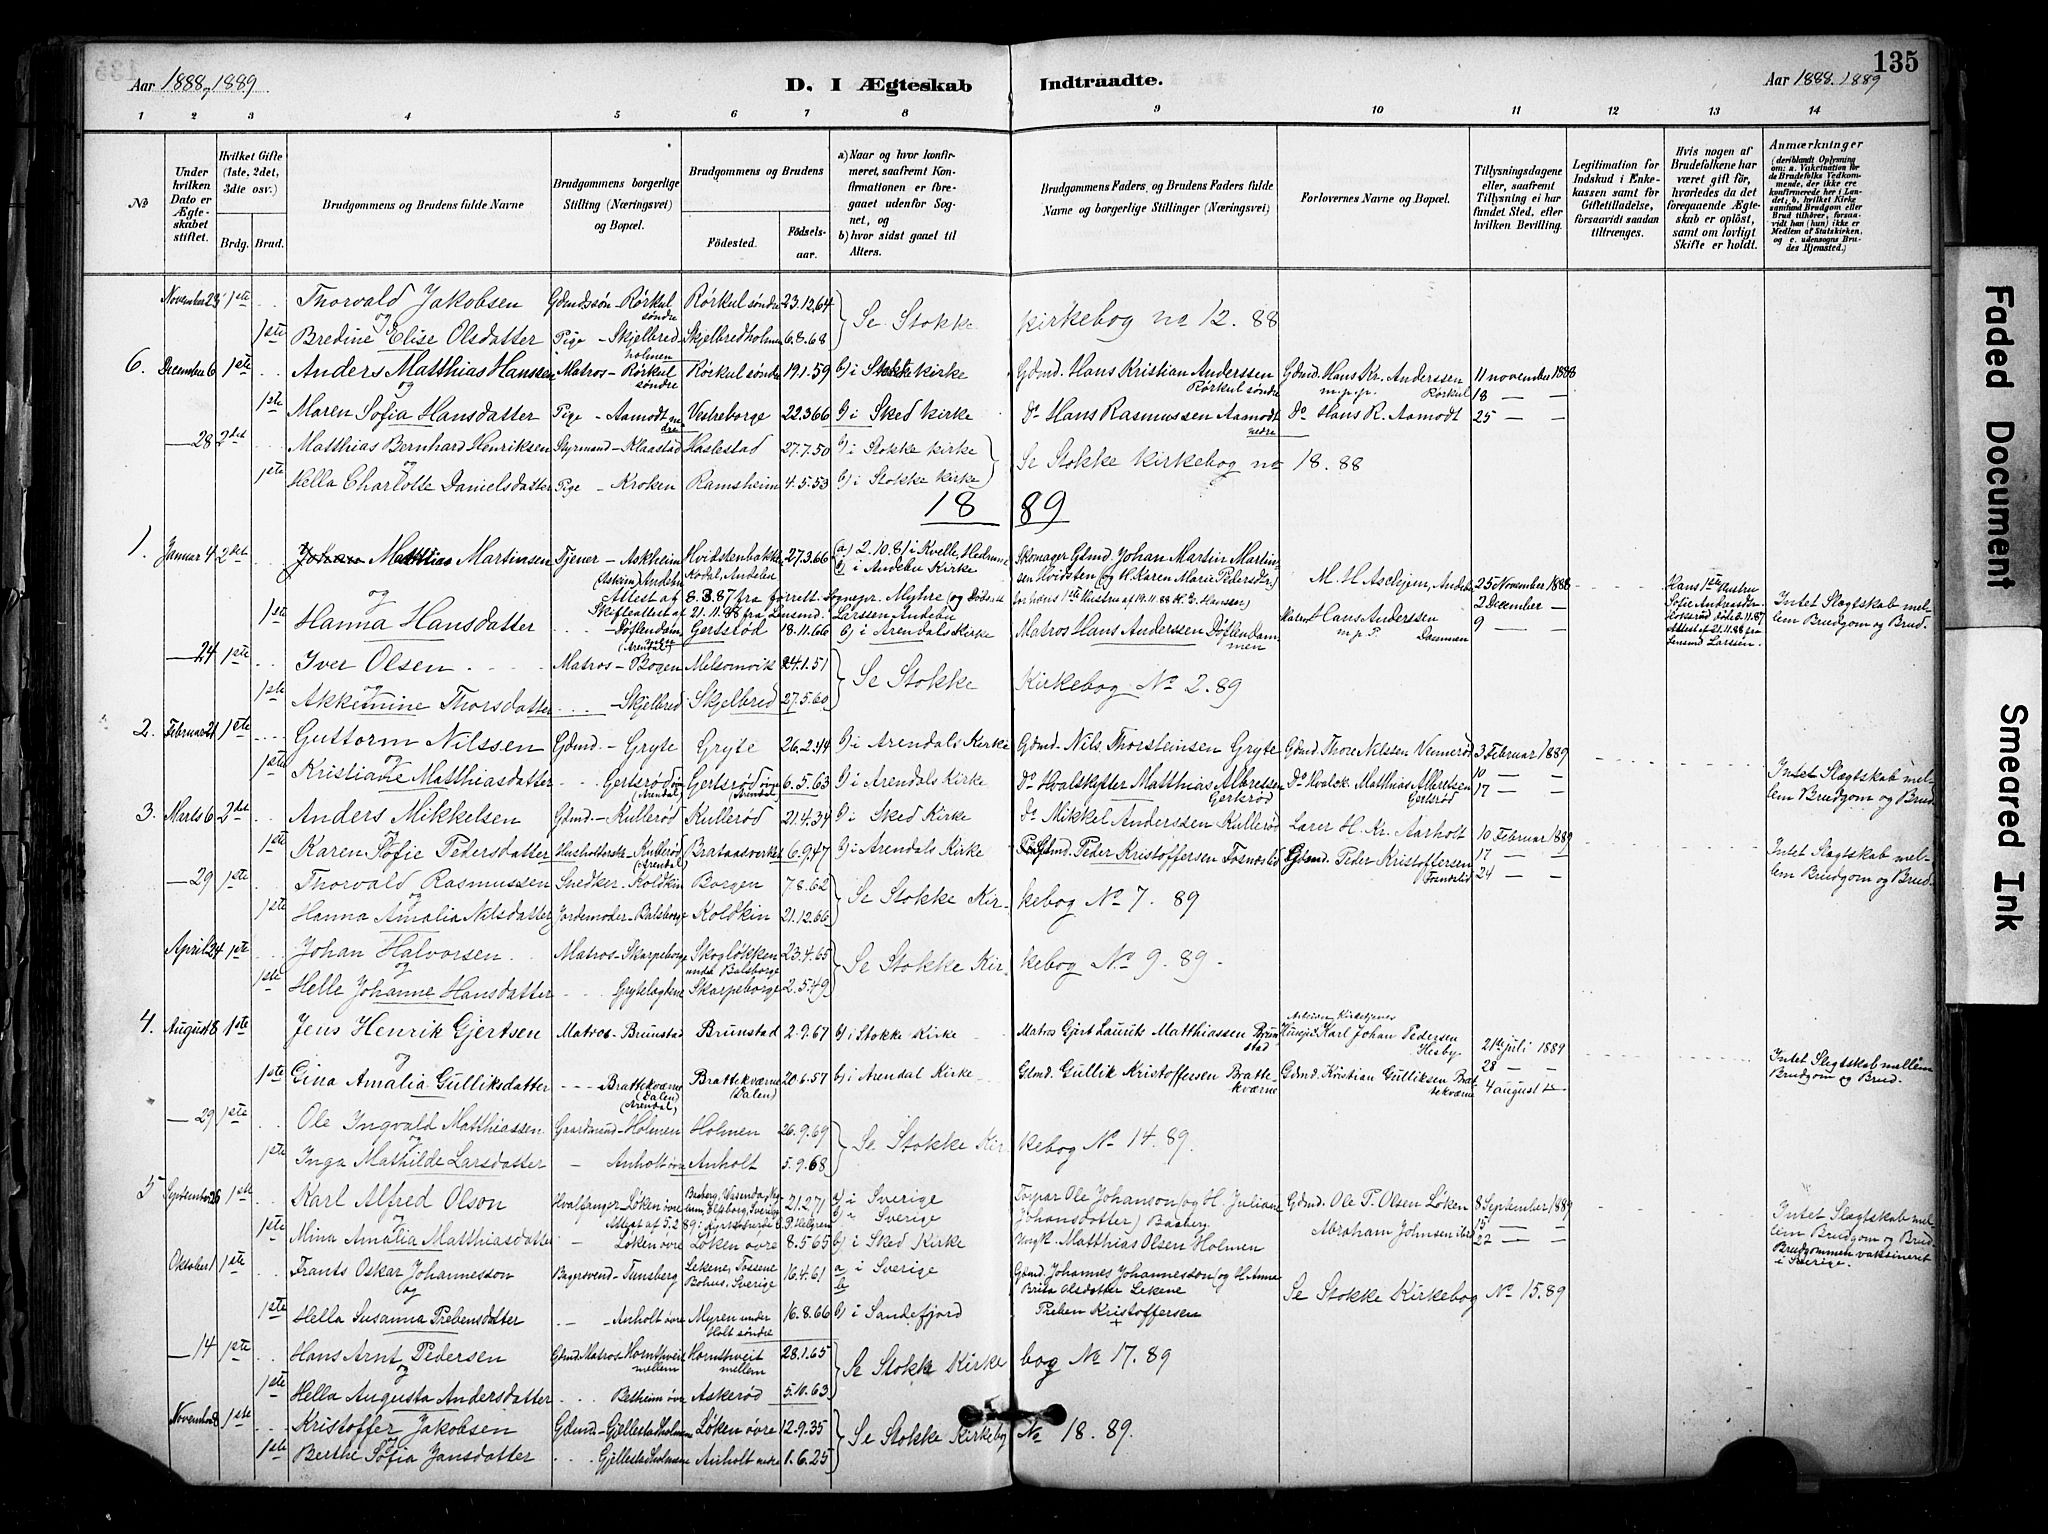 135
Aar 1888, 1889
D. I Ægteskab Indtraadte.
Aar 1888. 1889
1 2 3 4 5 6 7 8 9 10 11 12 13 14
№
Under hvilken Dato er Ægteskabet stiftet.
Hvilket Gifte (1ste, 2det, 3die osv.)
Brdg. Brud.
Brudgommens og Brudens fulde Navne
Brudgommens borgerlige Stilling (Næringsvei) og Bopæl.
Brudgommens og Brudens
Fødested. Fødselsaar.
a) Naar og hvor konfirmeret, saafremt Konfirmationen er foregaaet udenfor Sognet, og
b) hvor sidst gaaet til Alters.
Brudgommens Faders, og Brudens Faders fulde Navne og borgerlige Stillinger (Næringsvei)
Forlovernes Navne og Bopæl.
Tillysningsdagene eller, saafremt Tillysning ei har fundet Sted, efter hvilken Bevilling.
Legitimation for Indskud i Enkekassen samt for Giftetilladelse, forsaavidt saadan tiltrænges.
Hvis nogen af Brudefolkene har været gift før, hvorledes da det foregaaende Ægteskab er opløst, samt om lovligt Skifte er holdt.
Anmærkninger
(deriblandt Oplysning om: a. Vakcination for de Brudefolks Vedkommende, der ikke ere konfirmerede her i Landet; b. hvilket Kirkesamfund Brudgom eller Brud tilhører, forsaavidt han (hun) ikke er Medlem af Statskirken, og c. udensogns Brudes Hjemsted.)
November 23 1ste Thorvald Jakobsen Gdmdssøn - Rörkul söndre Rörkul söndre 23.12.64 Se Stokke kirkebog no 12. 88
og
1ste Bredine Elise Olsdatter Pige - Skjelbred holmen Skjelbredholmen 6.8.68
6. December 6 1ste Anders Matthias Hanssen Matros - Rörkul söndre Rörkul söndre 19.1.59 b) i Stokke kirke Gdmd. Hans Kristian Anderssen Rörkul söndre Gdmd. Hans Kr. Anderssen m.p.p. Rörkul 11 november 1888
og 18 — —
1ste Maren Sofia Hansdatter Pige - Aamodt nedre Vestreborge 22.3.66 b) i Sked kirke Do Hans Rasmussen Aamodt nedre Do Hans R. Aamodt 25 — —
— 28 2det Matthias Bernhard Henriksen Styrmand - Klaastad Haslestad 27.7.50 b) i Stokke kirke Se Stokke kirkebog no 18. 88
og
1ste Hella Charlotte Danielsdatter Pige - Kroken Ramsheim 4.5.53 b) i Stokke kirke
18 89
1. Januar 4 2det Johan Matthias Martinsen Tjener - Askheim (Askim) Andebu Hvidstenbakke Kodal, Andebu 27.3.66 a) 2.10.81 i Kvelle, Hedrum b) i Andebu Kirke Skomager Gdmd. Johan Martin Martinsen Hvidsten (og H. Karen Marie Pedersdtr.) M. H. Aschjem, Andebu 25 November 1888
Attest af 8.3.87 fra forrett. Sognepr. Myhre
Skifteattest af 21.11.88 fra Lensmd. Larssen Andebu
og 2 December —
1ste Hanna Hansdatter Döflendammen (Arendal) Gertsröd 18.11.66 b) i Arendals Kirke Matros Hans Anderssen Döflendammen Matros Hans Anderssen m.p.P. Dammen 9 — —
Hans 1ste Hustru Sofie Andreasdtr. död Attest af 21.11.88 fra Lensmd Larssen.
Intet Slægtskab mellem Brudgom og Brud.
— 24 1ste Iver Olsen Matros - Bogen Melsomvik 24.1.51 Se Stokke Kirkebog No 2. 89
og
1ste Akkemine Thorsdatter Skjelbred Skjelbred 27.5.60
2. Februar 21 1ste Guttorm Nilssen Gdmd. - Gryte Gryte 26.2.44 b) i Arendals Kirke Gdmd. Nils Thorsteinsen Gryte Gdmd Thore Nilssen Vennerød 3 Februar 1889
og 10 — —
1ste Kristiane Matthiasdatter Gertsröd övre (Arendal) Gertsröd övre (Arendal) 6.5.63 b) i Arendals Kirke Do Hvalskytter Matthias Albretsen Gertsröd Do Hvalsk. Matthias Albretsen Gertsröd 17 — — Intet Slægtskab mellem Brudgom og Brud.
3. Marts 6 2det Anders Mikkelsen Gdmd. - Kulleröd Kulleröd 21.4.34 b) i Sked Kirke do Mikkel Anderssen Kulleröd Lærer H. Kr. Aarholt 10 Februar 1889
og 17 — —
1ste Karen Sofie Pedersdatter Husholderske - Kulleröd (Arendal) Brataasverket 6.9.47 b) i Arendals Kirke Gdmd. Peder Kristoffersen Fosnæslid Gdmd. Peder Kristoffersen 24 — — Intet Slægtskab mellem Brudgom og Brud.
— 29 1ste Thorvald Rasmussen Snedker - Koldkin Borgen 7.8.62 Se Stokke Kirkebog No 7. 89
og
1ste Hanna Amalia Nilsdatter Jordemoder - Balsborge Koldkin 21.12.66
April 24 1ste Johan Halvorsen Matros - Skarpeborge Skoglökken under Balsborge 23.4.65 Se Stokke Kirkebog No 9. 89.
og
1ste Helle Johanne Hansdatter Grytelagdene Skarpeborge 2.5.49
4. August 8 1ste Jens Henrik Gjertsen Matros - Brunstad Brunstad 2.9.67 b) i Stokke Kirke Matros Gjert Laurits Matthiassen Brunstad Kirketjener Karl Johan Pedersen Hesby 21de juli 1889
og 28 — —
1ste Gina Amalia Gulliksdatter Brattekværne (Dalen) (Arendal) Brattekværne (Dalen) 20.6.57 b) i Arendal Kirke Gdmd. Gullik Kristoffersen Brattekværne Gdmd. Kristian Gulliksen Brattekværne 4 august — Intet Slægtskab mellem Brudgom og Brud.
— 29 1ste Ole Ingvald Matthiassen Gaardmand - Holmen Holmen 26.9.69 Se Stokke Kirkebog No 14. 89.
og
1ste Inga Mathilde Larsdatter Anholt övre Anholt 5.9.68
5 September 26 1ste Karl Alfred Olson Hvalfanger - Löken övre 21.2.71 a) i Sverige b) i Sverige Torpar Ole Johanson (og H. Juliane Johansdotter) Baaberg. Gdmd. Ole P. Olsen Löken 8 September 1889
og 15 — —
1ste Mina Amalia Matthiasdatter Löken övre Löken övre 8.5.65 b) i Sked Kirke Ungk. Matthias Olsen Holmen Abraham Johnsen ibid 22 — — Intet Slægtskab mellem Brudgom og Brud. Brudgommen vaksineret i Sverige.
Oktober 1 1ste Frants Oskar Johannesson Bagersvend - Tunsberg Lekene, Tossene Bohus. Sverige 16.4.61 a b i Sverige Gdmd. Johannes Johannesson (og H. Anna Brita Olsdatter Lekene Se Stokke Kirkebog No 15. 89
og
1ste Hella Susanna Prebensdatter Anholt övre Myren under Holt söndre 16.8.66 b) i Sandefjord Preben Kristoffersen
— 14 1ste Hans Arnt Pedersen Gdmd. Matros - Hornthveit mellem Hornthveit mellem 28.1.65 Se Stokke Kirkebog No 17. 89
og
1ste Hella Augusta Andersdatter Betheim övre Askeröd 5.10.63
November 8 1ste Kristoffer Jakobsen Gdmd - Gjellestadholmene Löken övre 12.9.35 Se Stokke Kirkebog No 18. 89.
og
1ste Berthe Sofia Jansdatter Gjellestadholmene Anholt nedre 1.6.25
Faded Document
Smeared Ink